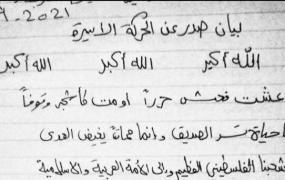 9-2021
بيان صدر عن الحركة الأسيرة
الله أكبر الله أكبر الله أكبر
عشت فعش حرراً أو مت كالشجر وقوفاً
حياة تسر الصديق وإنما مماتاً يغيض العدى
شعبنا الفلسطيني العظيم وإلى الأمة العربية والإسلامية